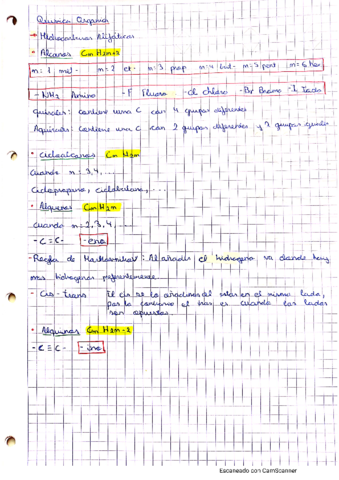 Química Orgánica
→ Hidrocarburos Alifáticos
· Alcanos Cn H2n+2
n=1 met- n=2 et- n=3 prop n=4 but- n=5 pent n=6 hex
-NH2 Amino -F Fluoro -Cl chloro -Br Bromo -I Iodo
Quirales: contiene una C con 4 grupos diferentes
Aquirales: contiene una C con 2 grupos diferentes y 2 grupos
· Cicloalcanos Cn H2n
cuando n=3,4,...
Ciclopropano, ciclobutano,...
· Alquenos Cn H2n
cuando n=2,3,4,...
-C=C- -eno
-Regla de Markovnikov: Al añadir el hidrógeno va donde hay
mas hidrogenos
· Cis-trans El cis se lo añadimos si estas en el mismo lado,
por lo contrario el trans es cuando los lados
son opuestos.
· Alquinos Cn H2n-2
-C≡C- -ino
Escaneado con CamScanner